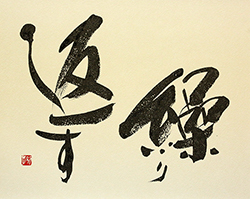 繰り
返す